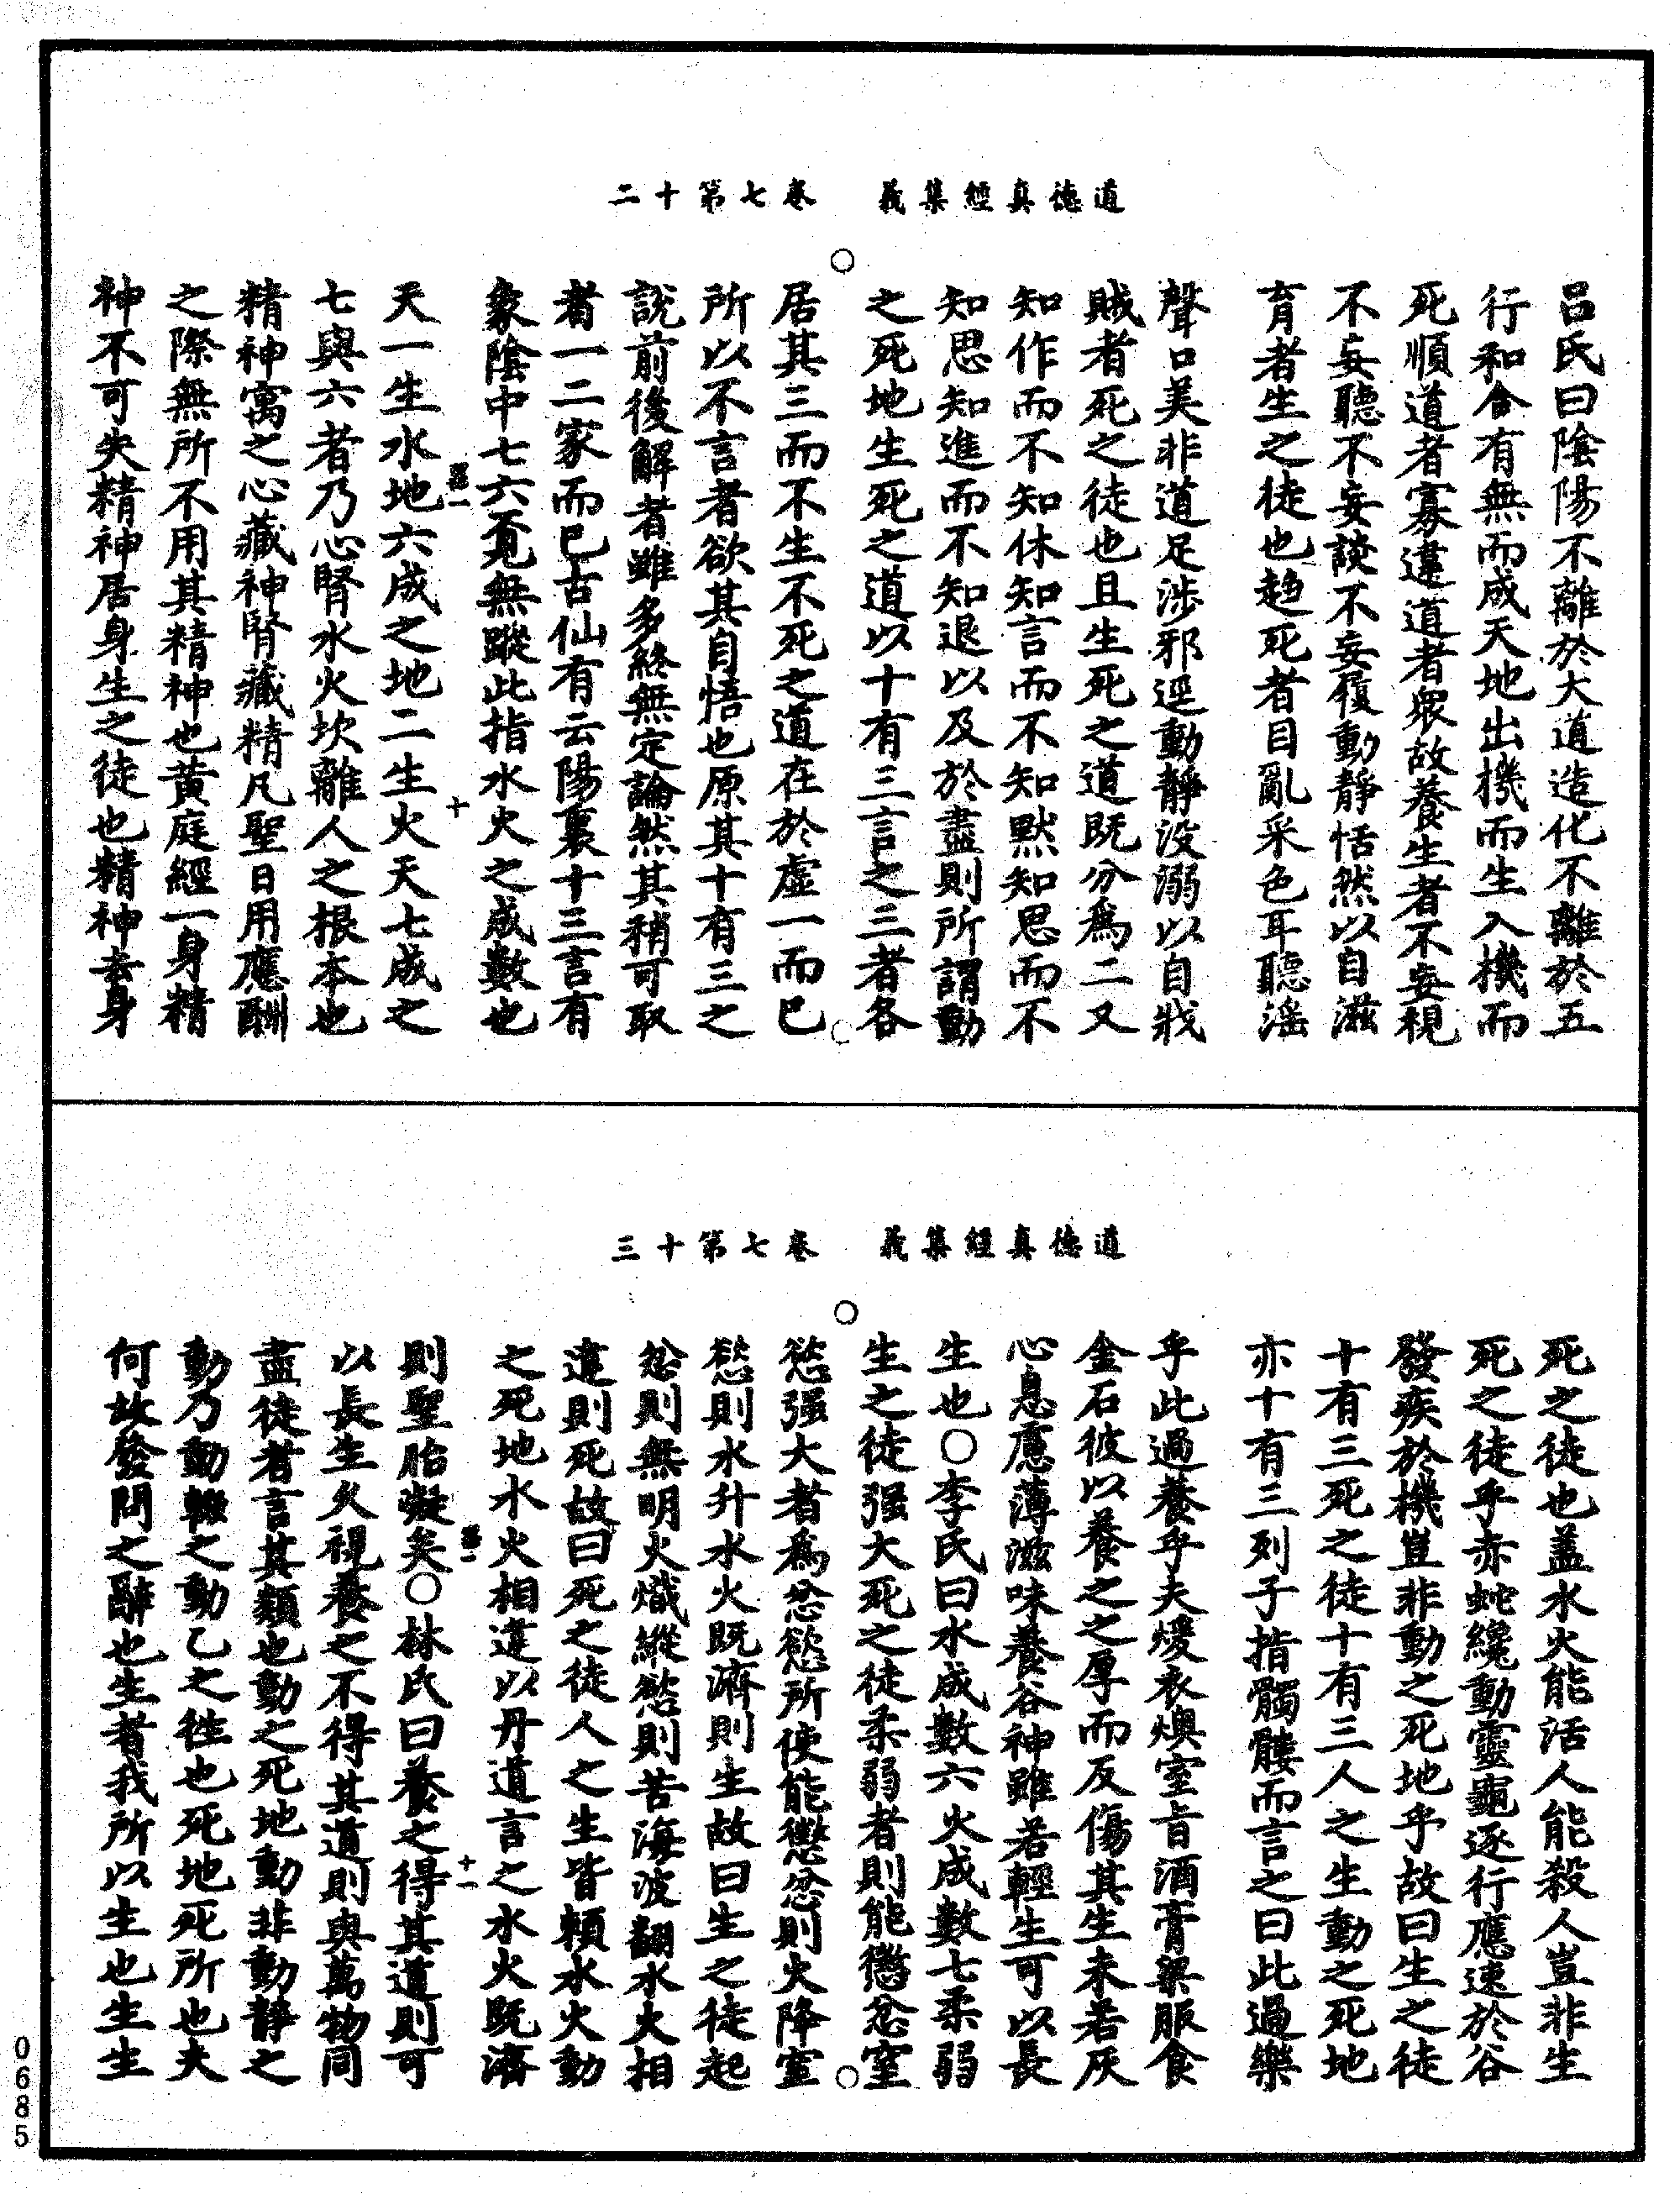 道德真經集義　卷七第十二
呂氏曰陰陽不離於大道造化不離於五
行和合有無而成天地出機而生入機而
死順道者寡違道者衆故養生者不妄視
不妄聽不妄談不妄履動靜恬然以自滋
育者生之徒也趋死者目亂采色耳聽滛
聲口美非道足涉邪逕動靜没溺以自戕
賊者死之徒也且生死之道既分爲二又
知作而不知休知言而不知默知思而不
知思知進而不知退以及於盡則所謂動
之死地生死之道以十有三言之三者各
居其三而不生不死之道在於虛一而已
所以不言者欲其自悟也原其十有三之
說前後解者雖多終無定論然其稍可取
者一二家而已古仙有云陽裏十三言有
象陰中七六覓無蹤此指水火之成數也
天一生水地六成之地二生火天七成之
七與六者乃心腎水火坎離人之根本也
精神寓之心藏神腎藏精凡聖日用應酬
之際無所不用其精神也黃庭經一身精
神不可失精神居身生之徒也精神去身
十
道德真經集義　卷七第十三
死之徒也盖水火能活人能殺人豈非生
死之徒乎赤蛇纔動靈龜逐行應速於谷
發疾於機豈非動之死地乎故曰生之徒
十有三死之徒十有三人之生動之死地
亦十有三列子指髑髏而言之曰此過樂
乎此過養乎夫煖衣燠室旨酒膏粱服食
金石彼以養之之厚而反傷其生未若灰
心息慮薄滋味養谷神雖若輕生可以長
生也○李氏曰水成數六火成數七柔弱
生之徒强大死之徒柔弱者則能懲忿窒
慾强大者爲忿慾所使能懲忿則火降窒
慾則水升水火既濟則生故曰生之徒起
忿則無明火熾縱慾則苦海波翻水火相
違則死故曰死之徒人之生皆賴水火動
之死地水火相違以丹道言之水火既濟
則聖胎凝矣○林氏曰養之得其道則可
以長生久視養之不得其道則與萬物同
盡徒者言其類也動之死地動非動靜之
動乃動輒之動乙之徃也死地死所也夫
何故發問之辭也生者我所以生也生生
十一
0685